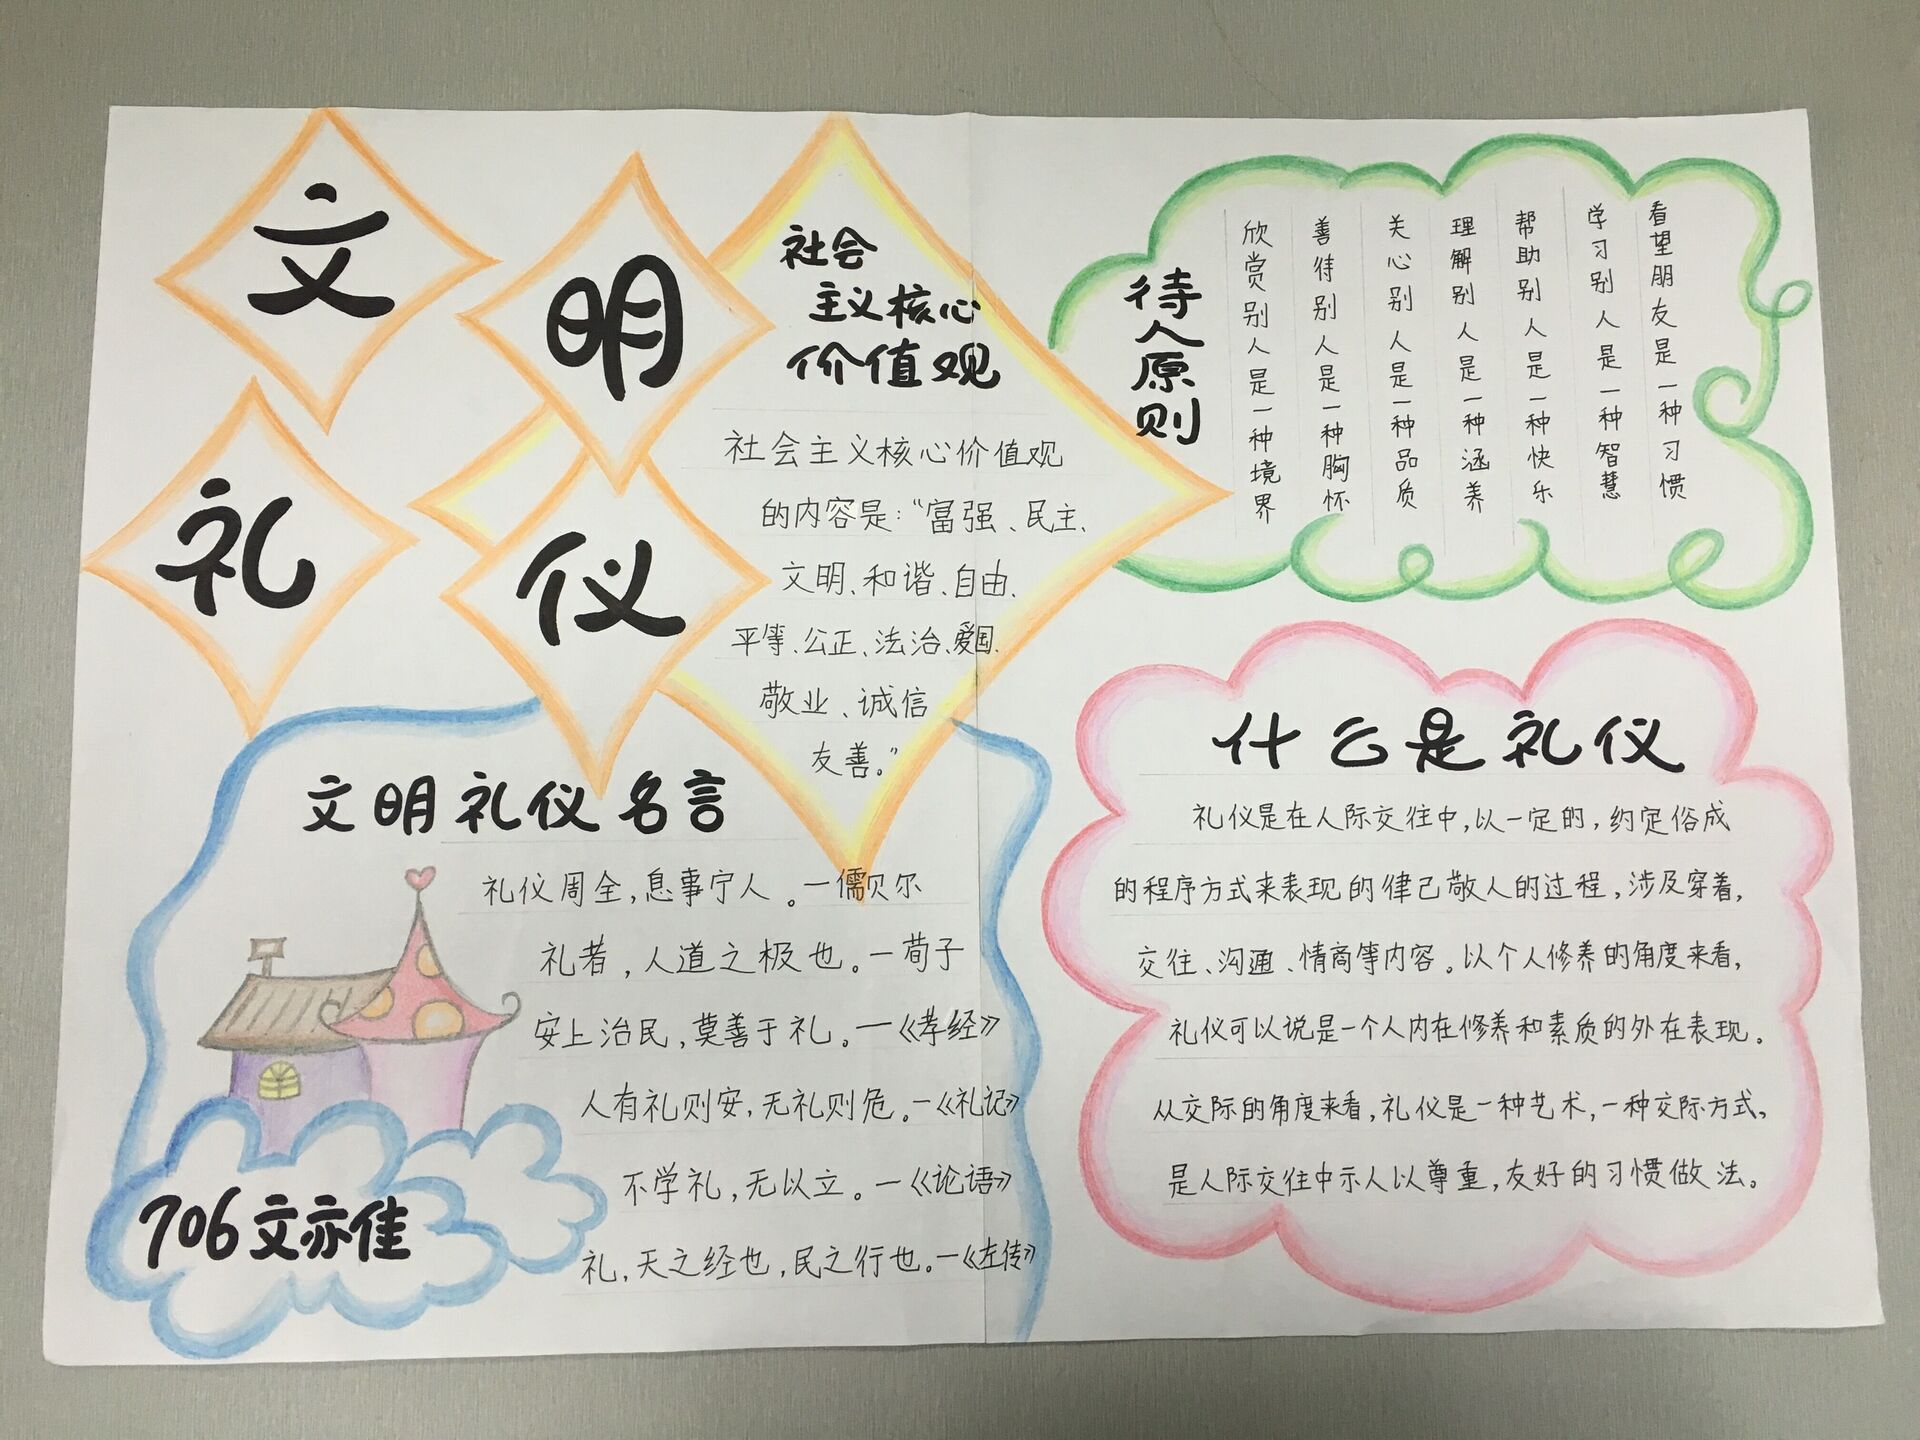 文明
礼仪
社会
主义核心
价值观
社会主义核心价值观
的内容是：“富强、民主、
文明、和谐、自由、
平等、公正、法治、爱国、
敬业、诚信
友善。”
待人原则
欣赏别人是一种境界
善待别人是一种胸怀
关心别人是一种品质
理解别人是一种涵养
帮助别人是一种快乐
学习别人是一种智慧
看望朋友是一种习惯
文明礼仪名言
礼仪周全，息事宁人。—儒贝尔
礼者，人道之极也。—荀子
安上治民，莫善于礼。—《孝经》
人有礼则安，无礼则危。—《礼记》
不学礼，无以立。—《论语》
礼，天之经也，民之行也。—《左传》
706文亦佳
什么是礼仪
礼仪是在人际交往中，以一定的，约定俗成
的程序方式来表现的律己敬人的过程，涉及穿着，
交往、沟通、情商等内容。以个人修养的角度来看，
礼仪可以说是一个人内在修养和素质的外在表现。
从交际的角度来看，礼仪是一种艺术，一种交际方式，
是人际交往中示人以尊重，友好的习惯做法。